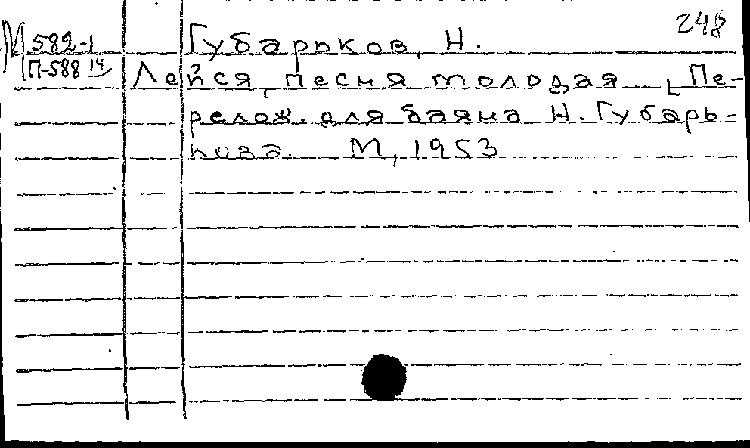 248
М 582-1
П-588 14
Губарьков, Н.
Лейся, песня молодая. [Пе-
релож. для баяна Н. Губарь-
кова. М, 1953